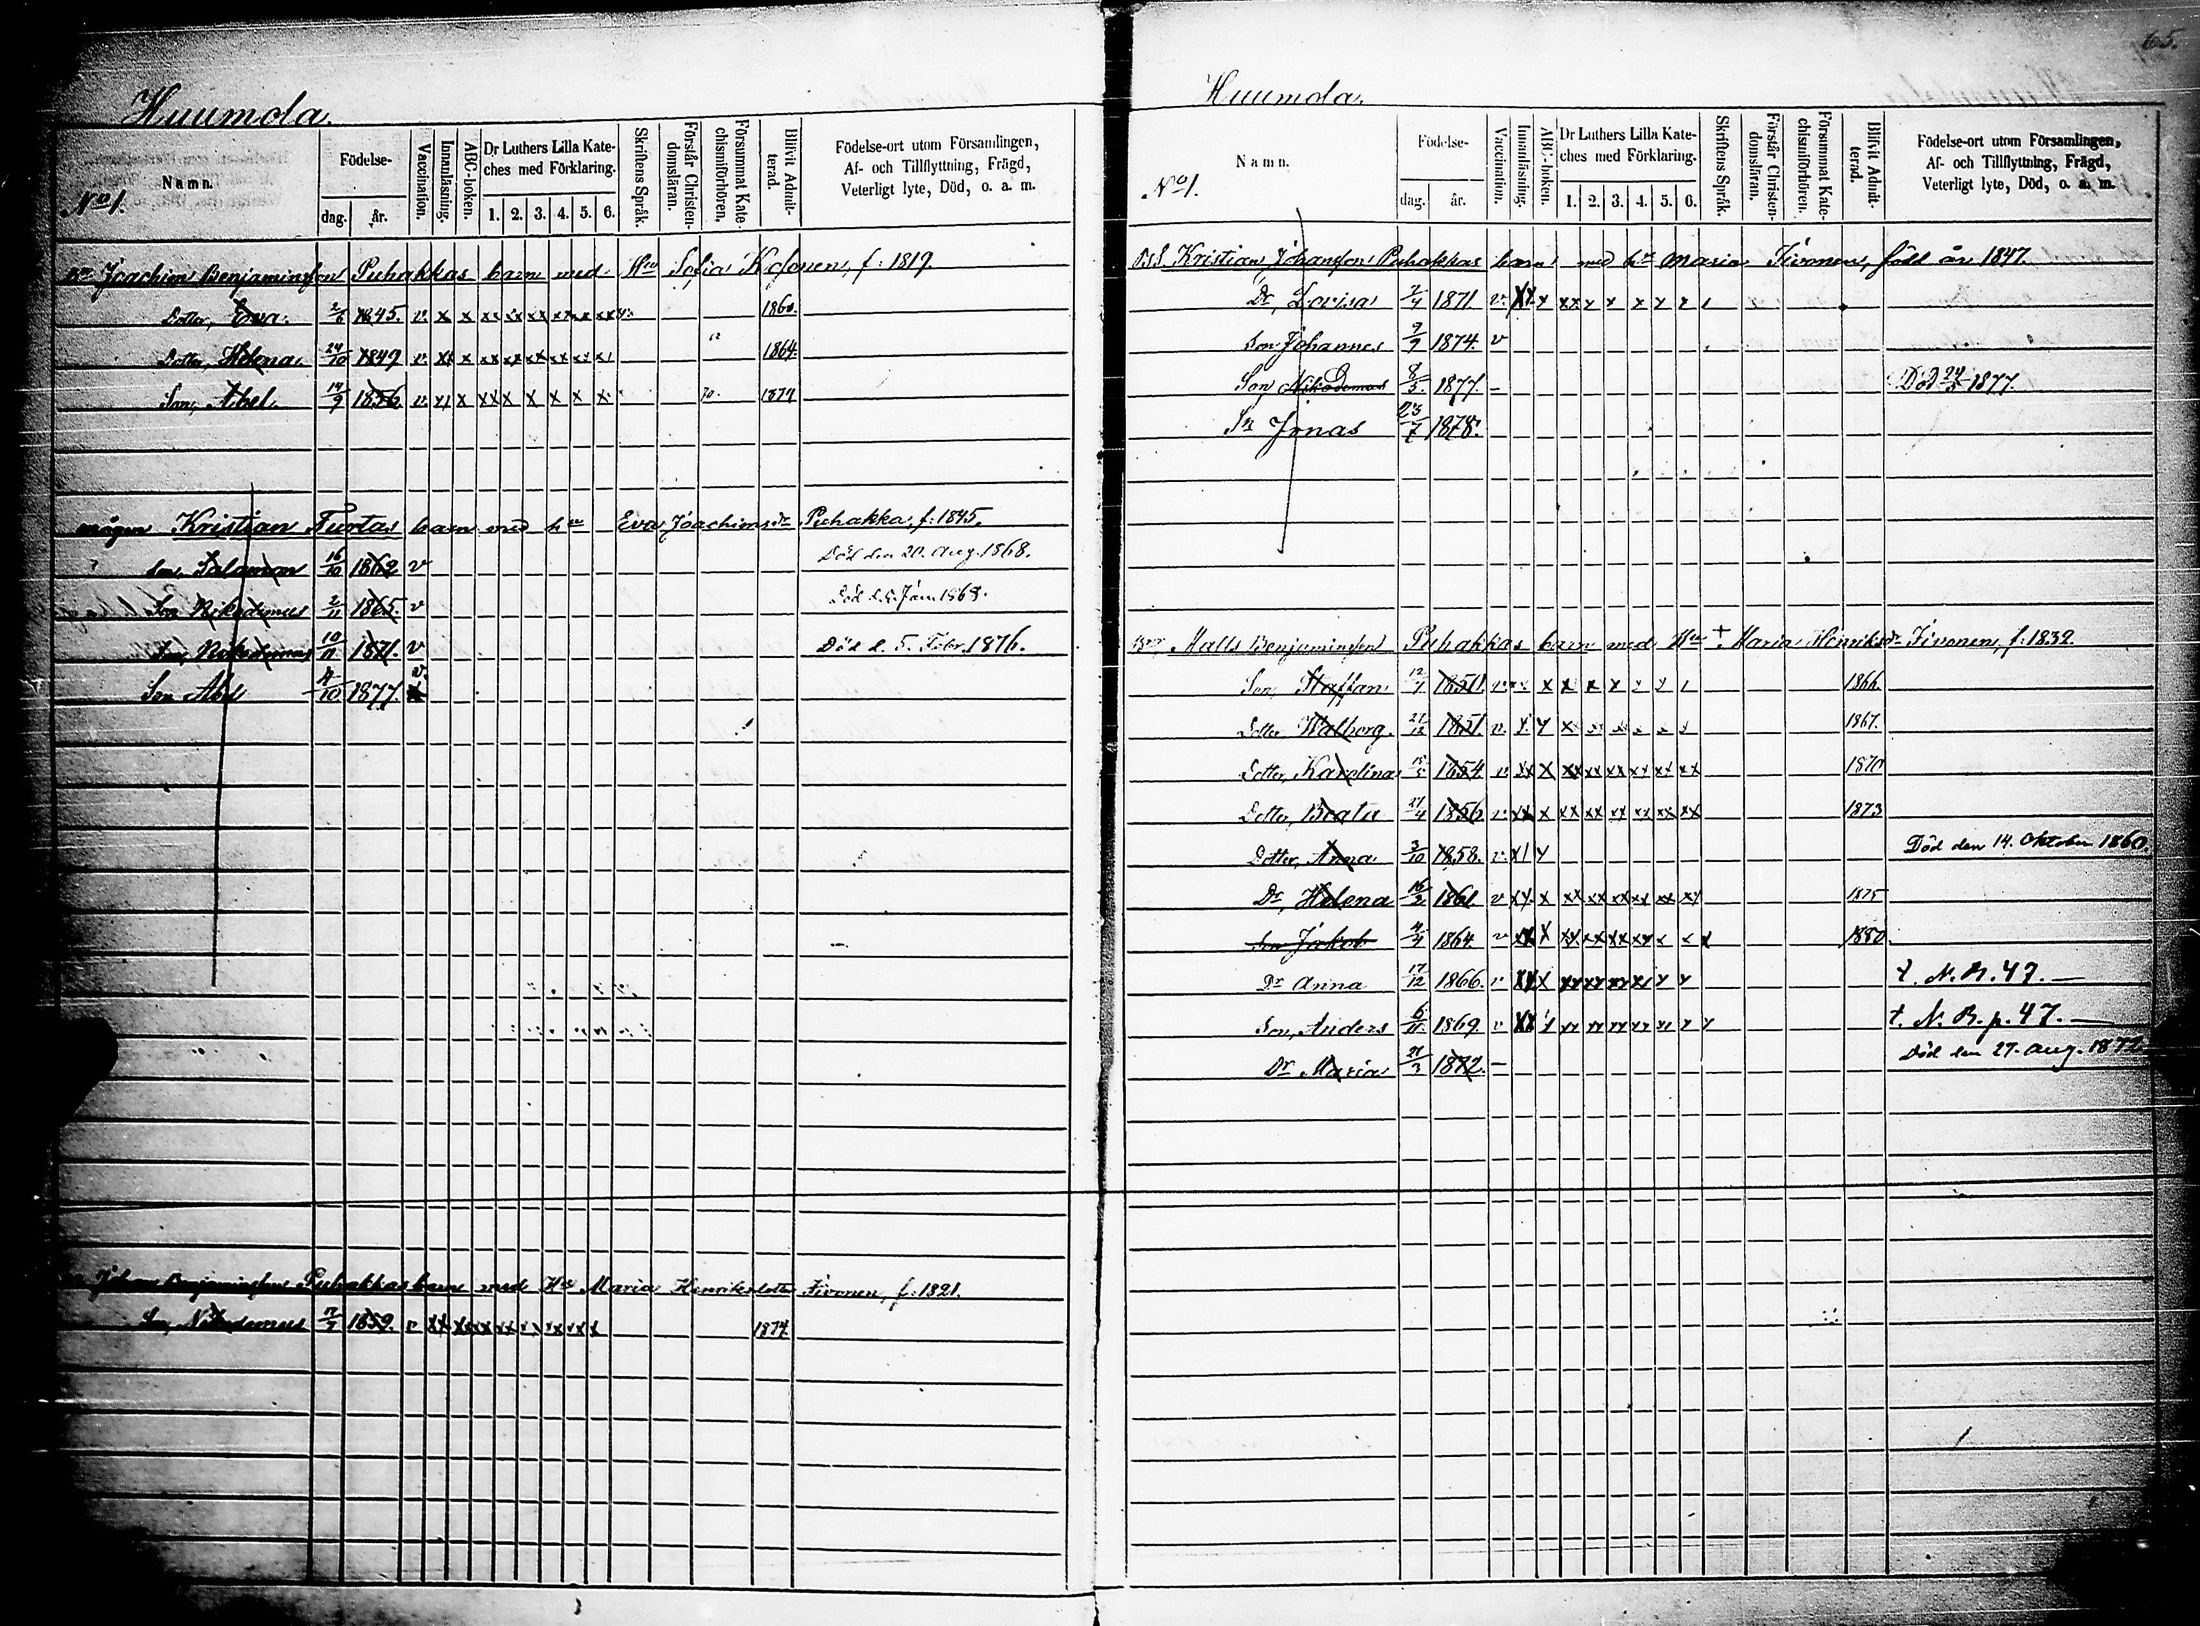 65.
Huumola.
No 1.
Namn.
Födelse-
dag. år.
Vaccination.
Innanläsning.
ABC-boken.
Dr Luthers Lilla Kate-
ches med Förklaring.
1. 2. 3. 4. 5. 6.
Skriftens Språk.
Förstår Christen-
domsläran.
Försummat Kate-
chismiförhören.
Blifvit Admit-
terad.
Födelse-ort utom Församlingen,
Af- och Tillflyttning, Frägd,
Veterligt lyte, Död, o. a. m.
Joachim Benjaminsson Puhakkas barn med Hu Sofia Kosonen, f. 1819.
Dotter, Eva. 2/6 1845. v. x x xx xx xx xx xx 1860.
Dotter, Helena. 24/10 1849 v. xx x xx xx xx xx xx 1864.
Son, Abel. 14/9 1856 v. x x xx x x x x x
mågen Kristian Turtas barn med hu Eva Joachimsdr Puhakka, f. 1845.
Son, Salaman 16/10 1862 v Död den 20. Aug. 1868.
Son Nikodemus 2/11 1865. v
Son, Nikodemus 10/11 1871. v Död d. 5. Febr. 1876.
Son Abel 4/10 1877. v.
Johan Benjaminsson Puhakkas barn med Hu Maria Henriksdotter Tivonen, f. 1821.
Son, Nikodemus 1859. v xx xx xx xx 1874.
Huumola.
No 1.
Namn.
Födelse-
dag. år.
Vaccination.
Innanläsning.
ABC-boken.
Dr Luthers Lilla Kate-
ches med Förklaring.
1. 2. 3. 4. 5. 6.
Skriftens Språk.
Förstår Christen-
domsläran.
Försummat Kate-
chismiförhören.
Blifvit Admit-
terad.
Födelse-ort utom Församlingen,
Af- och Tillflyttning, Frägd,
Veterligt lyte, Död, o. a. m.
Kristian Johansson Puhakkas barn med hu Maria Tivonen, född år 1847.
Dr, Lovisa 2/4 1871. v. xx x xx x x x x x
Son Johannes 9/9 1874. v
Son Nikodemus 8/3 1877. – Död 24/5 1877.
Sn Jonas 23/7 1878.
Matts Benjaminsson Puhakkas barn med Hu + Maria Henriksdr Tivonen, f. 1832.
Son, Staffan 12/1 1850. v x x x x x 1866.
Dotter Walborg. 21/12 1851. v. x x x 1867.
Dotter, Karolina 1854 v xx x xx xx xx xx xx xx 1870
Dotter, Beata 27/4 1856 v xx x xx xx xx xx xx xx 1873
Dotter, Anna 3/10 1858. v. x x Död den 14. Oktober 1860.
Dr, Helena 16/2 1861 v xx x xx xx xx xx xx xx 1875
Son Jakob 4/4 1864 v xx x xx xx xx xx x x x 1880.
Dr Anna 17/12 1866. v xx x xx xx xx xx x x t. N. B. 47.
Son, Anders 6/11. 1869 v xx x xx xx xx xx xx x x t. N. B. p. 47.
Dr Maria 21/3 1872. – Död den 27. Aug. 1872.